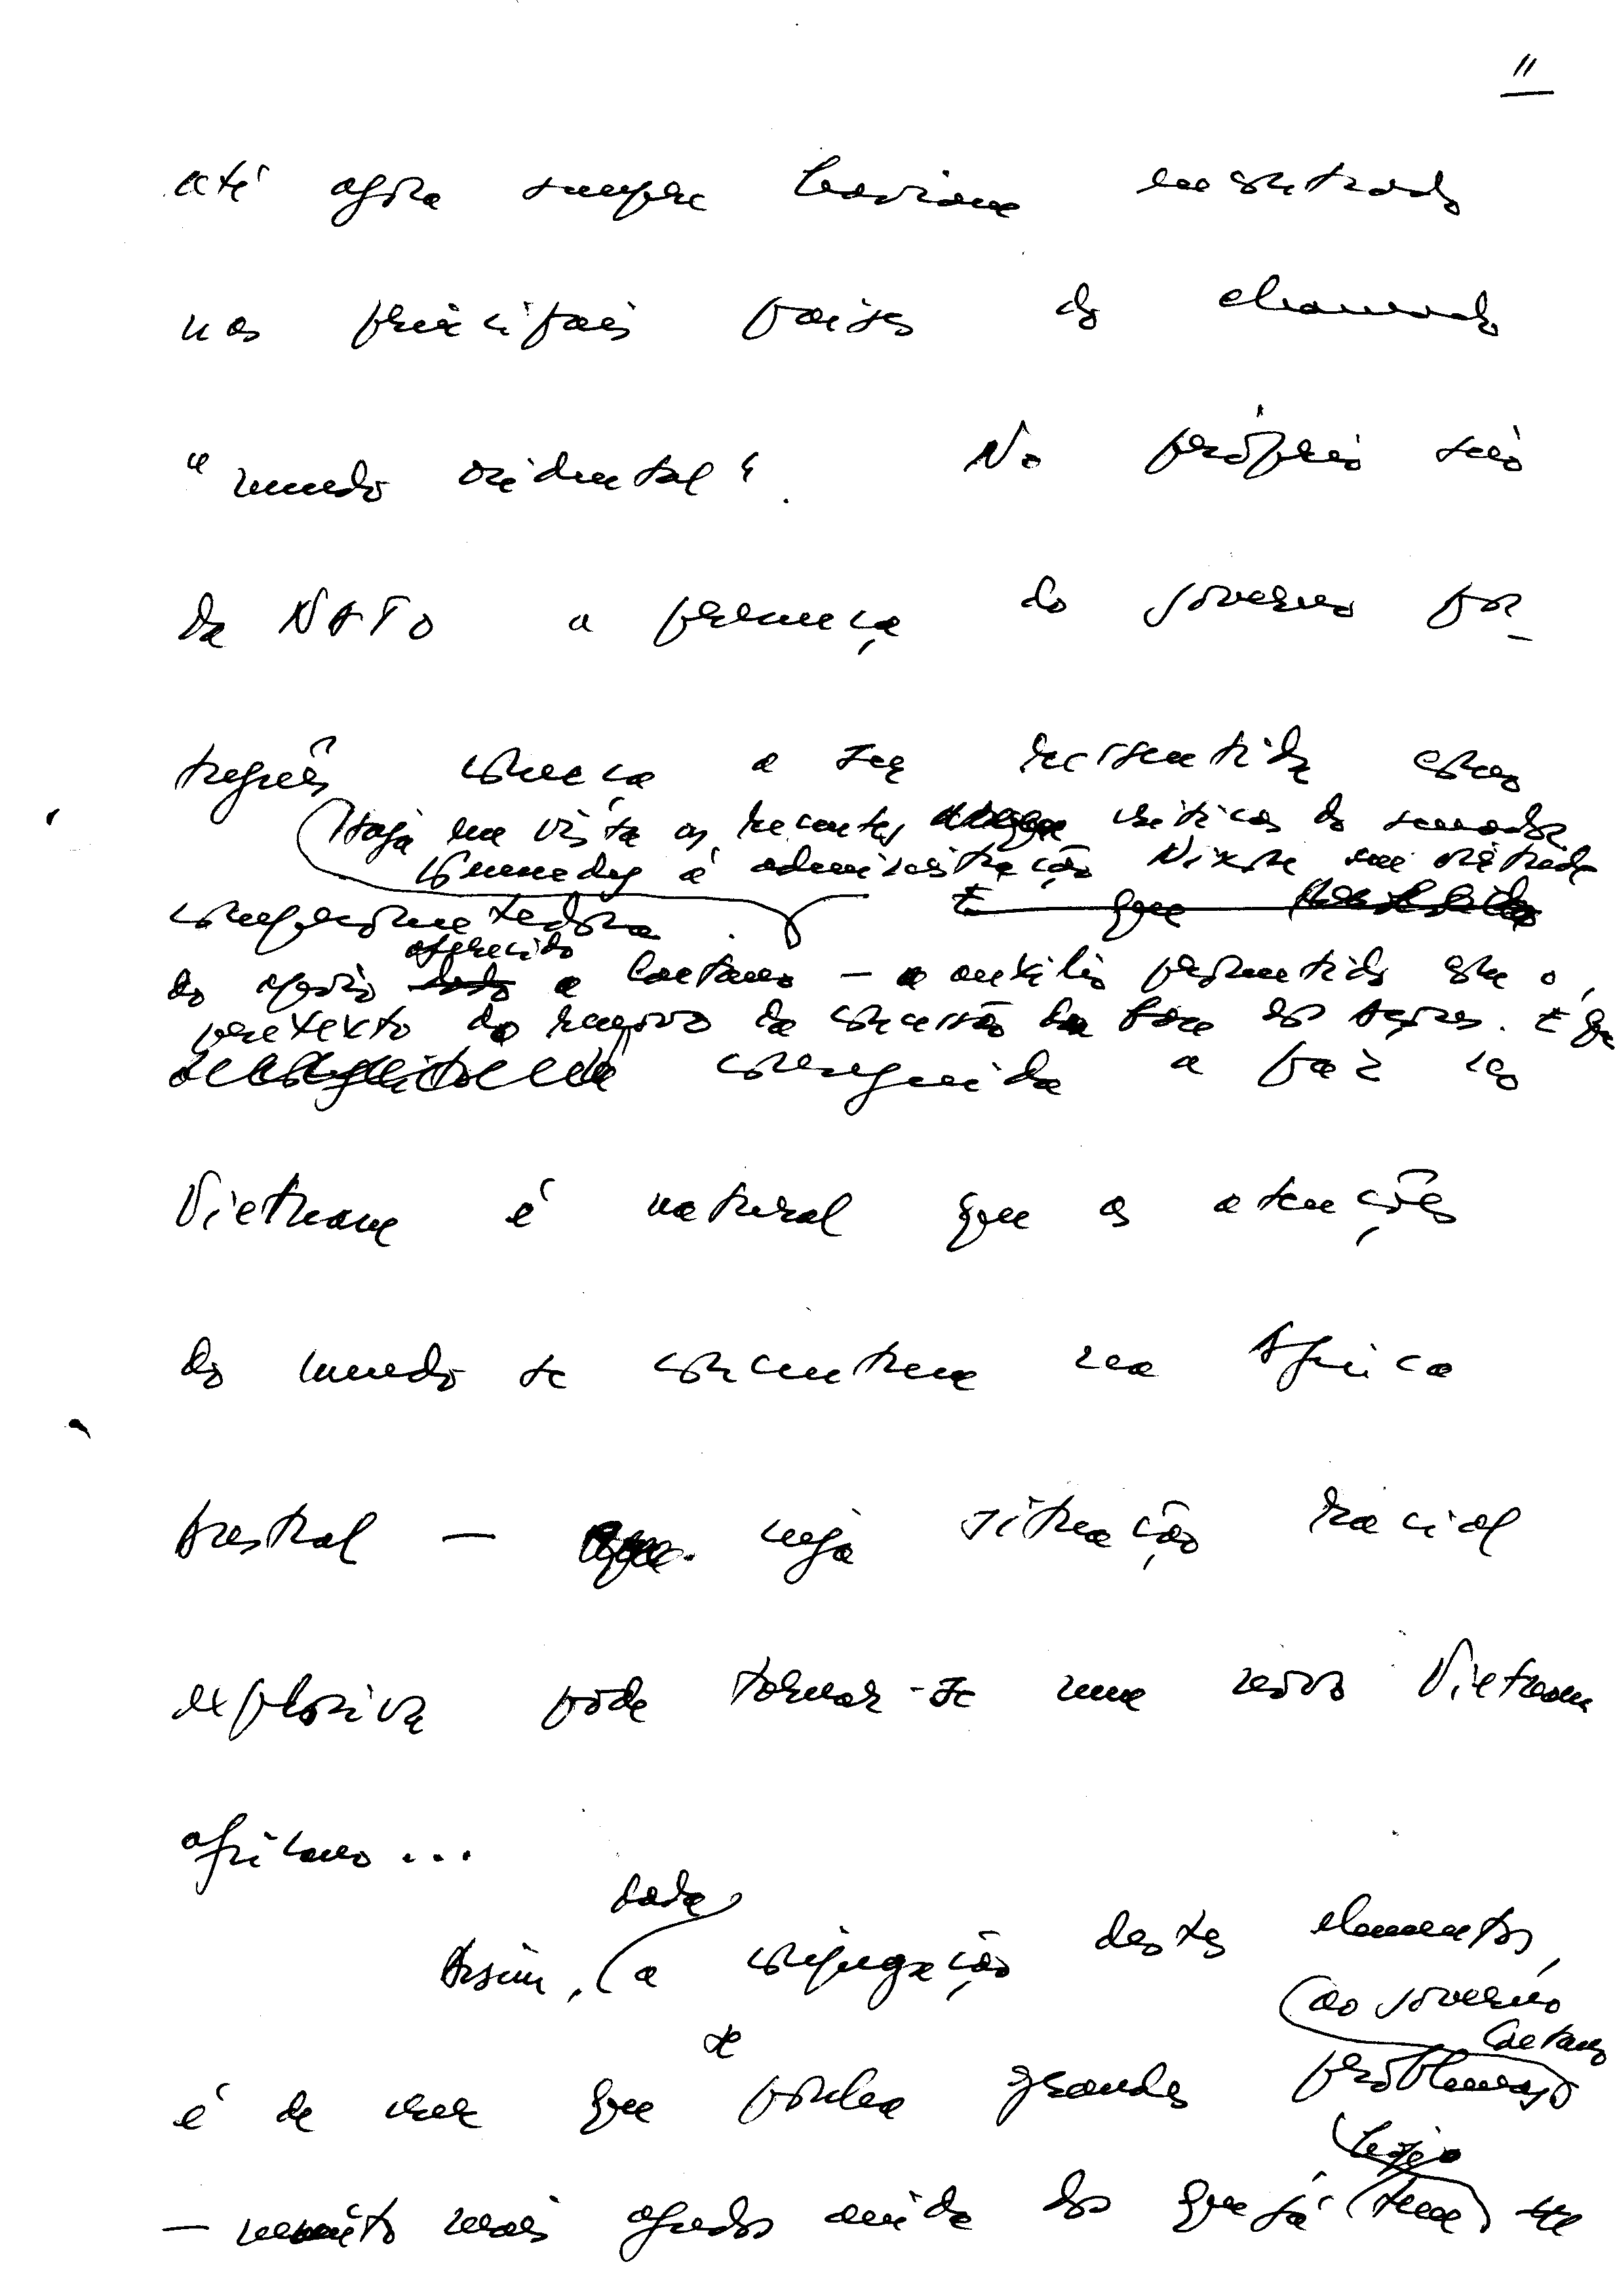 11
até agora sempre haviam encontrado
nos principais países do chamado
"mundo ocidental". No próprio seio
da NATO a presença do governo por-
tuguês começa a ser ressentida como
Haja em vista as recentes críticas do senador
Kennedy à administração Nixon em virtude
comprometedora. E que
oferecido
do apoio dado a Caetano — o auxílio prometido com o
pretexto da renovo da concessão da base dos Açores. É que
conseguida a paz no
Vietnam é natural que as atenções
do mundo se concentrem na África
Austral — cuja situação racial
explosiva pode tornar-se um novo Vietnam
africano...
dada
Assim, a conjugação destes elementos,
ao governo
Caetano
se
é de crer que ponha grandes problemas
hoje
— muito mais agudos ainda dos que já tem em